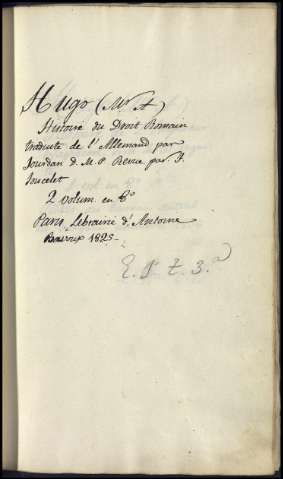 Hugo (Mr A)
Histoire du Droit Romain
traduite de l'Allemand par
Jourdan D. M. P. Revue par F.
Poncelet
2 volum. en 8º
Paris, Librairie d'Antoine
Bavoux 1825-
E. 1ª t. 3.ª